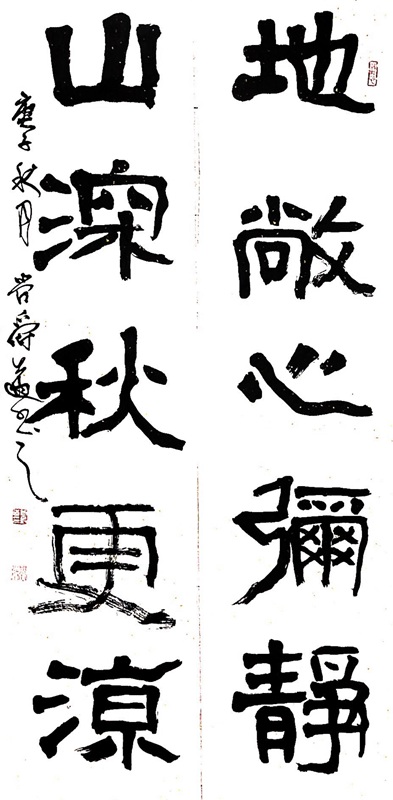 地敞心彌静
山深秋更涼
庚子秋月